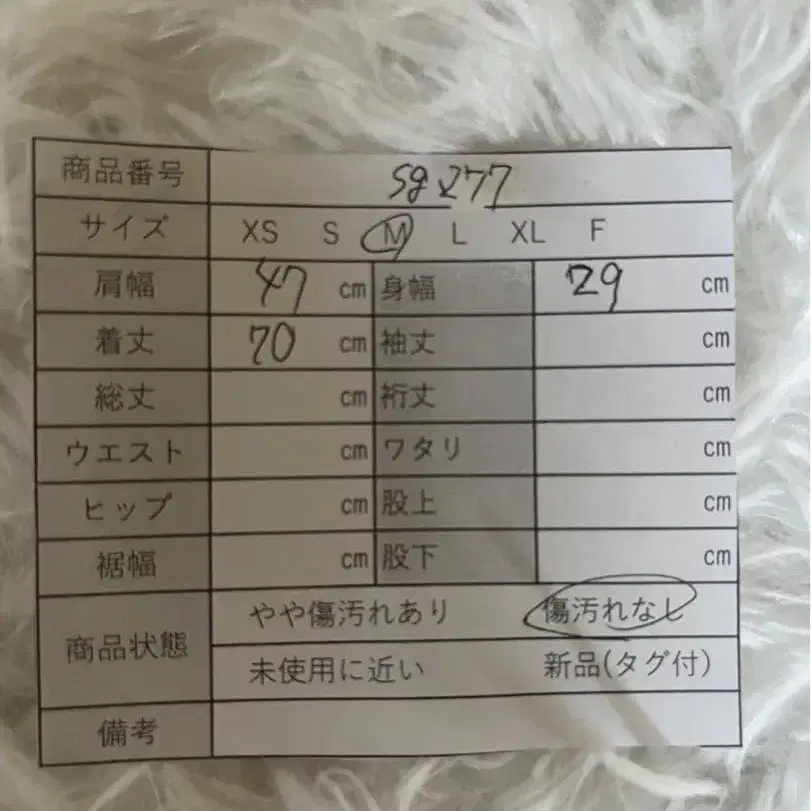 商品番号 sg277
サイズ XS S M L XL F
肩幅 47 cm 身幅 29 cm
着丈 70 cm 袖丈 cm
総丈 cm 裄丈 cm
ウエスト cm ワタリ cm
ヒップ cm 股上 cm
裾幅 cm 股下 cm
商品状態 やや傷汚れあり 傷汚れなし
未使用に近い 新品(タグ付)
備考